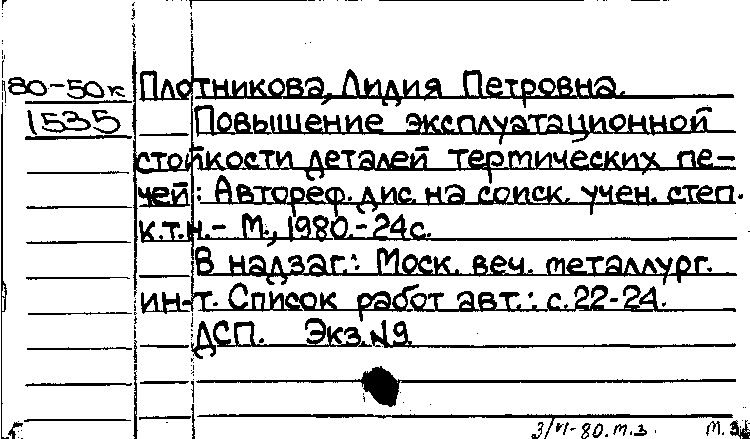 80-50к Плотникова, Лидия Петровна.
1535 Повышение эксплуатационной
стойкости деталей термических пе-
чей: Автореф. дис. на соиск. учен. степ.
к.т.н.- М., 1980.-24с.
В надзаг.: Моск. веч. металлург.
ин-т. Список работ авт.: с.22-24.
ДСП. Экз.№9
3/VI-80. т.з.